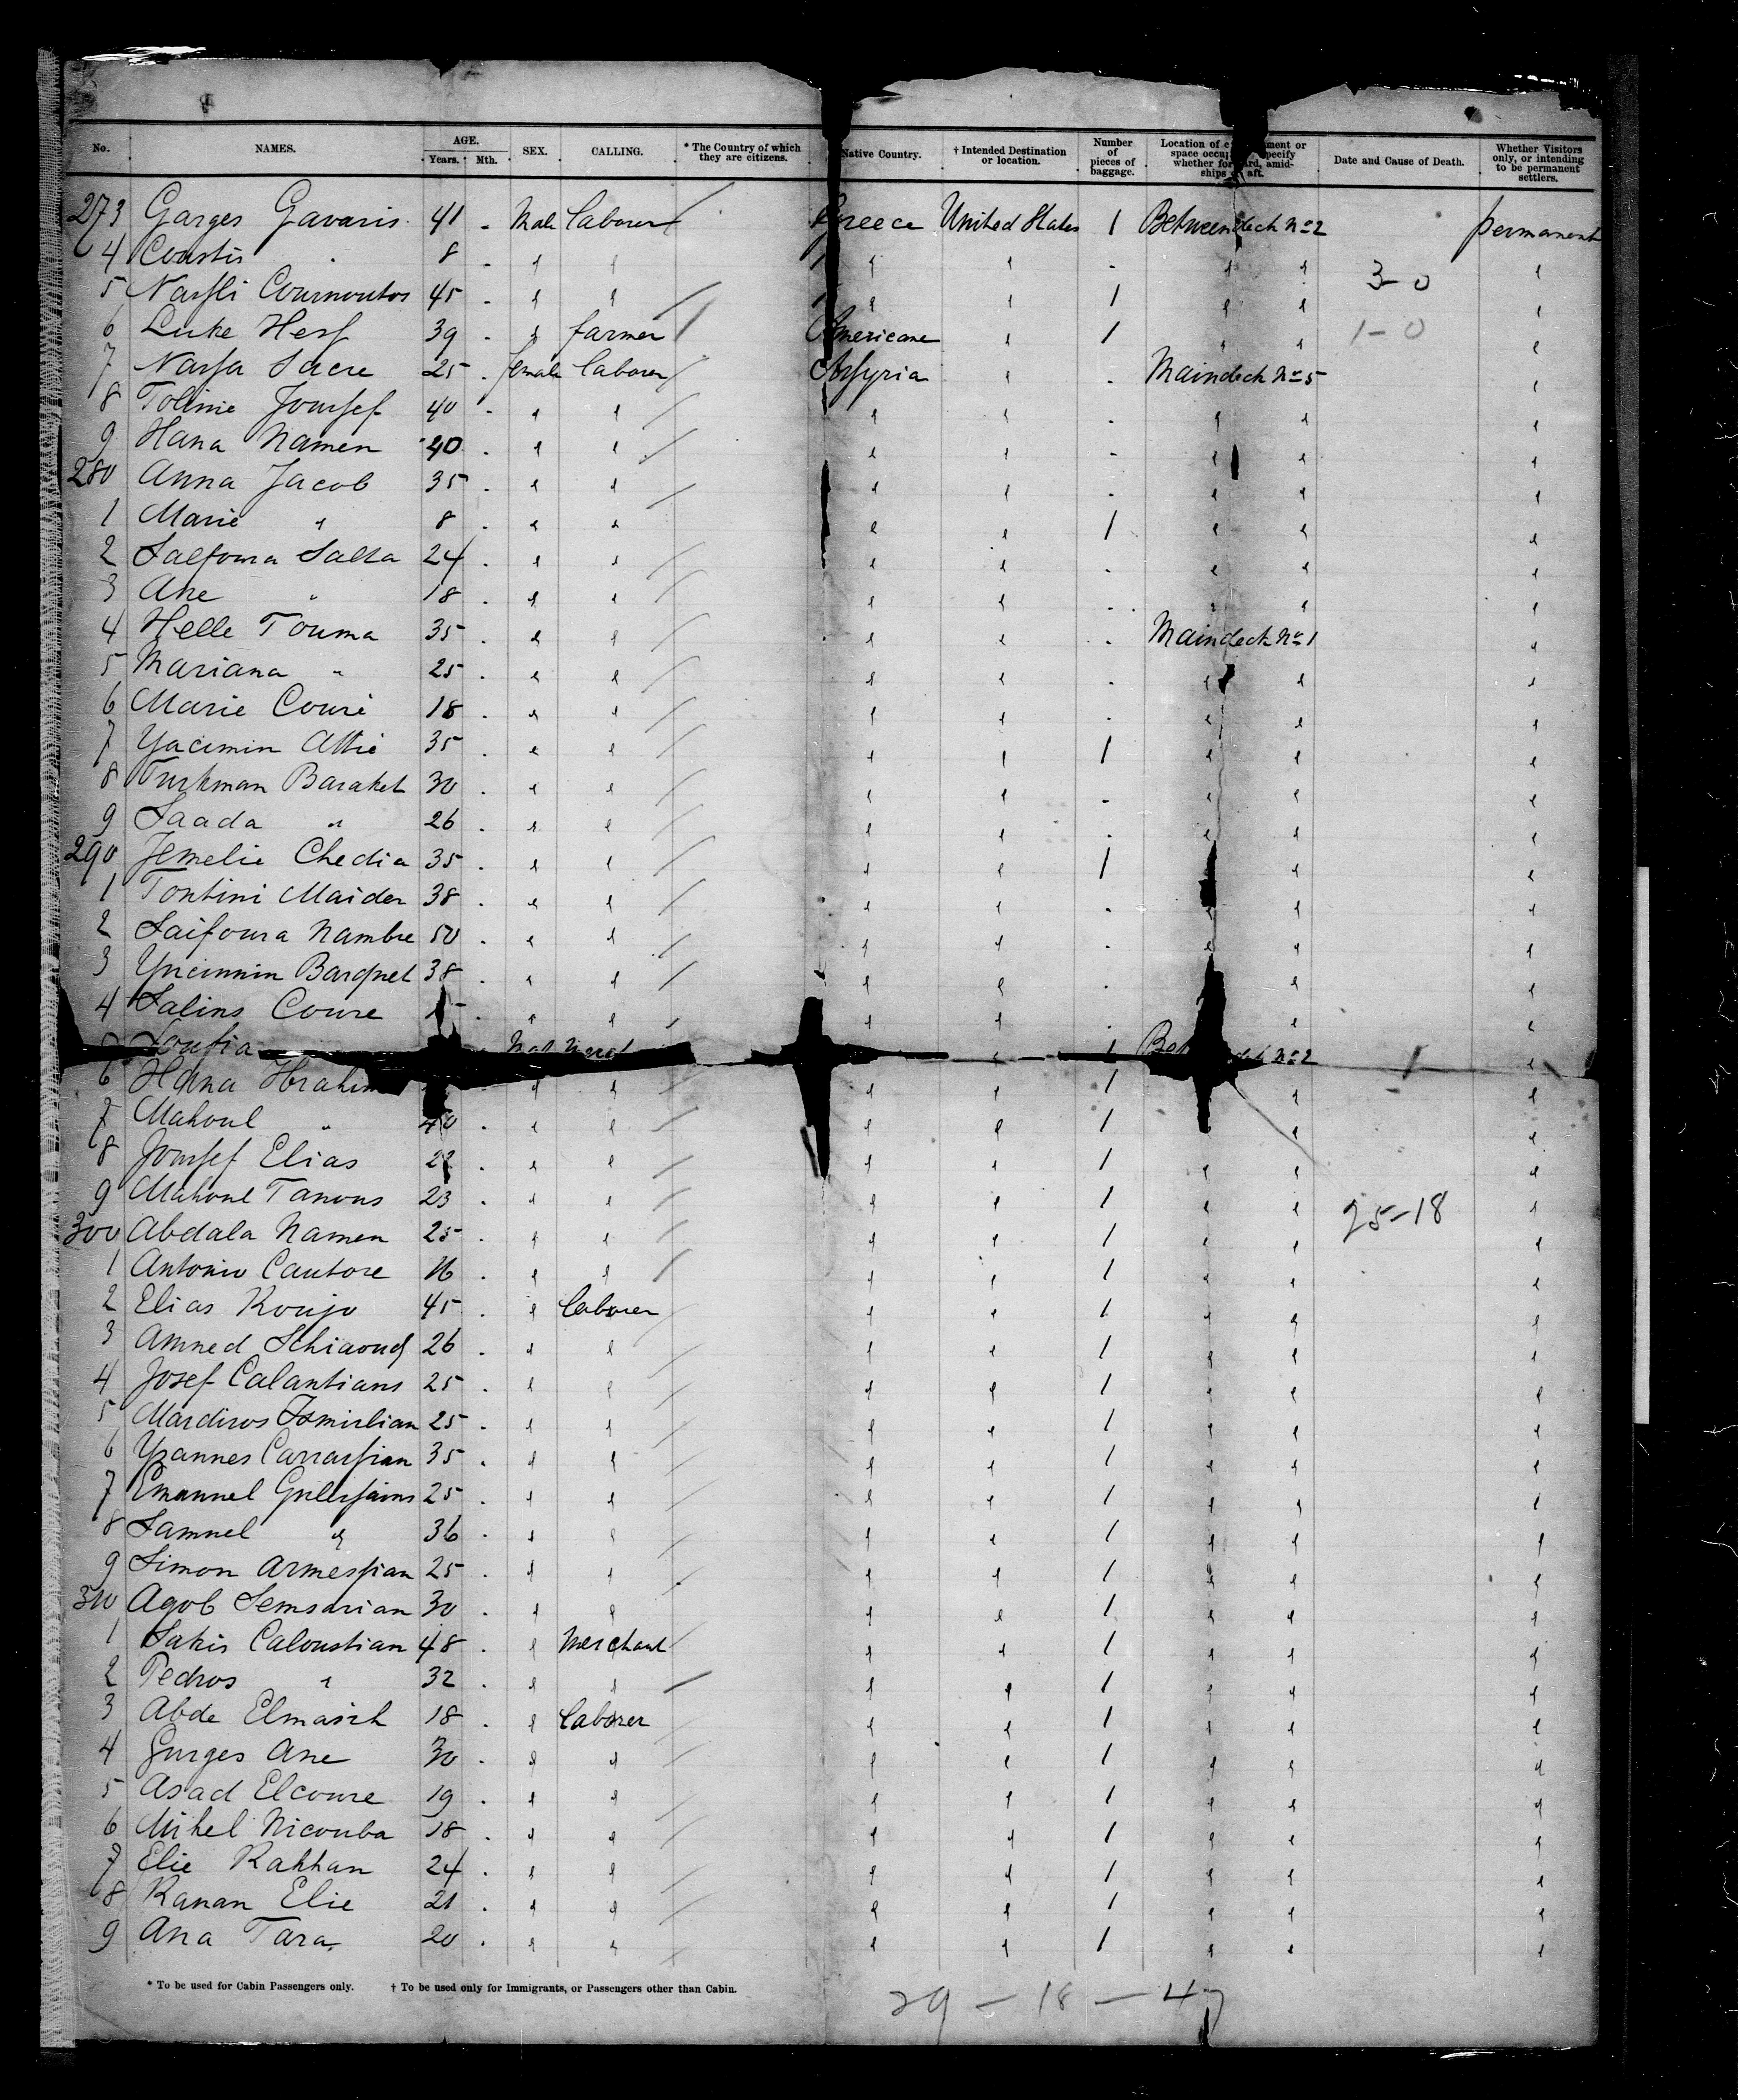 No. NAMES. AGE. Years. Mth. SEX. CALLING. * The Country of which they are citizens. Native Country. † Intended Destination or location. Number of pieces of baggage. Location of ment or space occup specify whether for rd, amid- ships aft. Date and Cause of Death. Whether Visitors only, or intending to be permanent settlers.
273 Garges Gavaris 41 . Male laborer Greece United States 1 Betweendeck No 2 permanent
4 Coustis " 8 . " " " " . " " 3-0 "
5 Nassli Cournoutos 45 . " " " " 1 " " "
6 Luke Hess 39 . " farmer Americane " 1 " " 1-0 "
7 Nassa Sacre 25 . female laborer Assyria " . Maindeck No 5 "
8 Tolime Joussef 40 . " " " " . " " "
9 Hana Namen 40 . " " " " . " " "
280 Anna Jacob 35 . " " " " . " " "
1 Marie " 8 . " " " " 1 " " "
2 Salfoura Salta 24 . " " " " . " " "
3 Ane " 18 . " " " " . " " "
4 Helle Touma 35 . " " " " . Maindeck No 1 "
5 Mariana " 25 . " " " " . " " "
6 Marie Couri 18 . " " " " . " " "
7 Yacimin Attié 35 . " " " " 1 " " "
8 Turkman Baraket 30 . " " " " . " " "
9 Saada " 26 . " " " " . " " "
290 Jemelie Chedia 35 . " " " " 1 " "
1 Tontini Maider 38 . " " " " . " " "
2 Saifoura Nambre 50 . " " " " . " " "
3 Yncimin Barquet 38 . " " " " . " "
4 Salins Coure . " " " " . " "
Soufia 1 No 2 "
6 Hana Ibrahim " " " " 1 " "
7 Mahoul " 40 . " " " " 1 " "
8 Joussef Elias 22 . " " " " 1 " " "
9 Mahoul Tanous 23 . " " " " 1 " " 25-18 "
300 Abdala Namen 25 . " " " " 1 " " "
1 Antonio Cautore 16 . " " " " 1 " " "
2 Elias Koujo 45 . " laborer " " 1 " " "
3 Amned Schiaoud 26 . " " " " 1 " " "
4 Josef Calantians 25 . " " " " 1 " " "
5 Mardiros Ismirlian 25 . " " " " 1 " " "
6 Yvannes Carrassian 35 . " " " " 1 " " "
7 Emannel 25 . " " " " 1 " " "
8 Samnel " 36 . " " " " 1 " " "
9 Simon Armessian 25 . " " " " 1 " " "
310 Agob Semsarian 30 . " " " " 1 " " "
1 Sakis Caloustian 48 . " Merchant " " 1 " " "
2 Pedros " 32 . " " " " 1 " " "
3 Abde Elmasih 18 . " laborer " " 1 " " "
4 Gurges Ane 30 . " " " " 1 " " "
5 Asad Elcoure 19 . " " " " 1 " " "
6 Mihel Nicouba 18 . " " " " 1 " " "
7 Elie Rahhan 24 . " " " " 1 " " "
8 Kanan Elie 21 . " " " " 1 " " "
9 Ana Tara 20 . " " " " 1 " " "
* To be used for Cabin Passengers only. † To be used only for Immigrants, or Passengers other than Cabin.
29 - 18 - 47